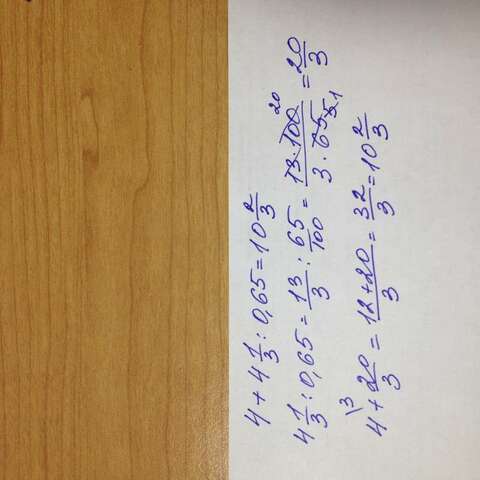 4 + 4 1/3 : 0,65 = 10 2/3
4 1/3 : 0,65 = 13/3 : 65/100 = 13·100 20/3·65 5 1 = 20/3
4 \3 + 20/3 = 12+20/3 = 32/3 = 10 2/3